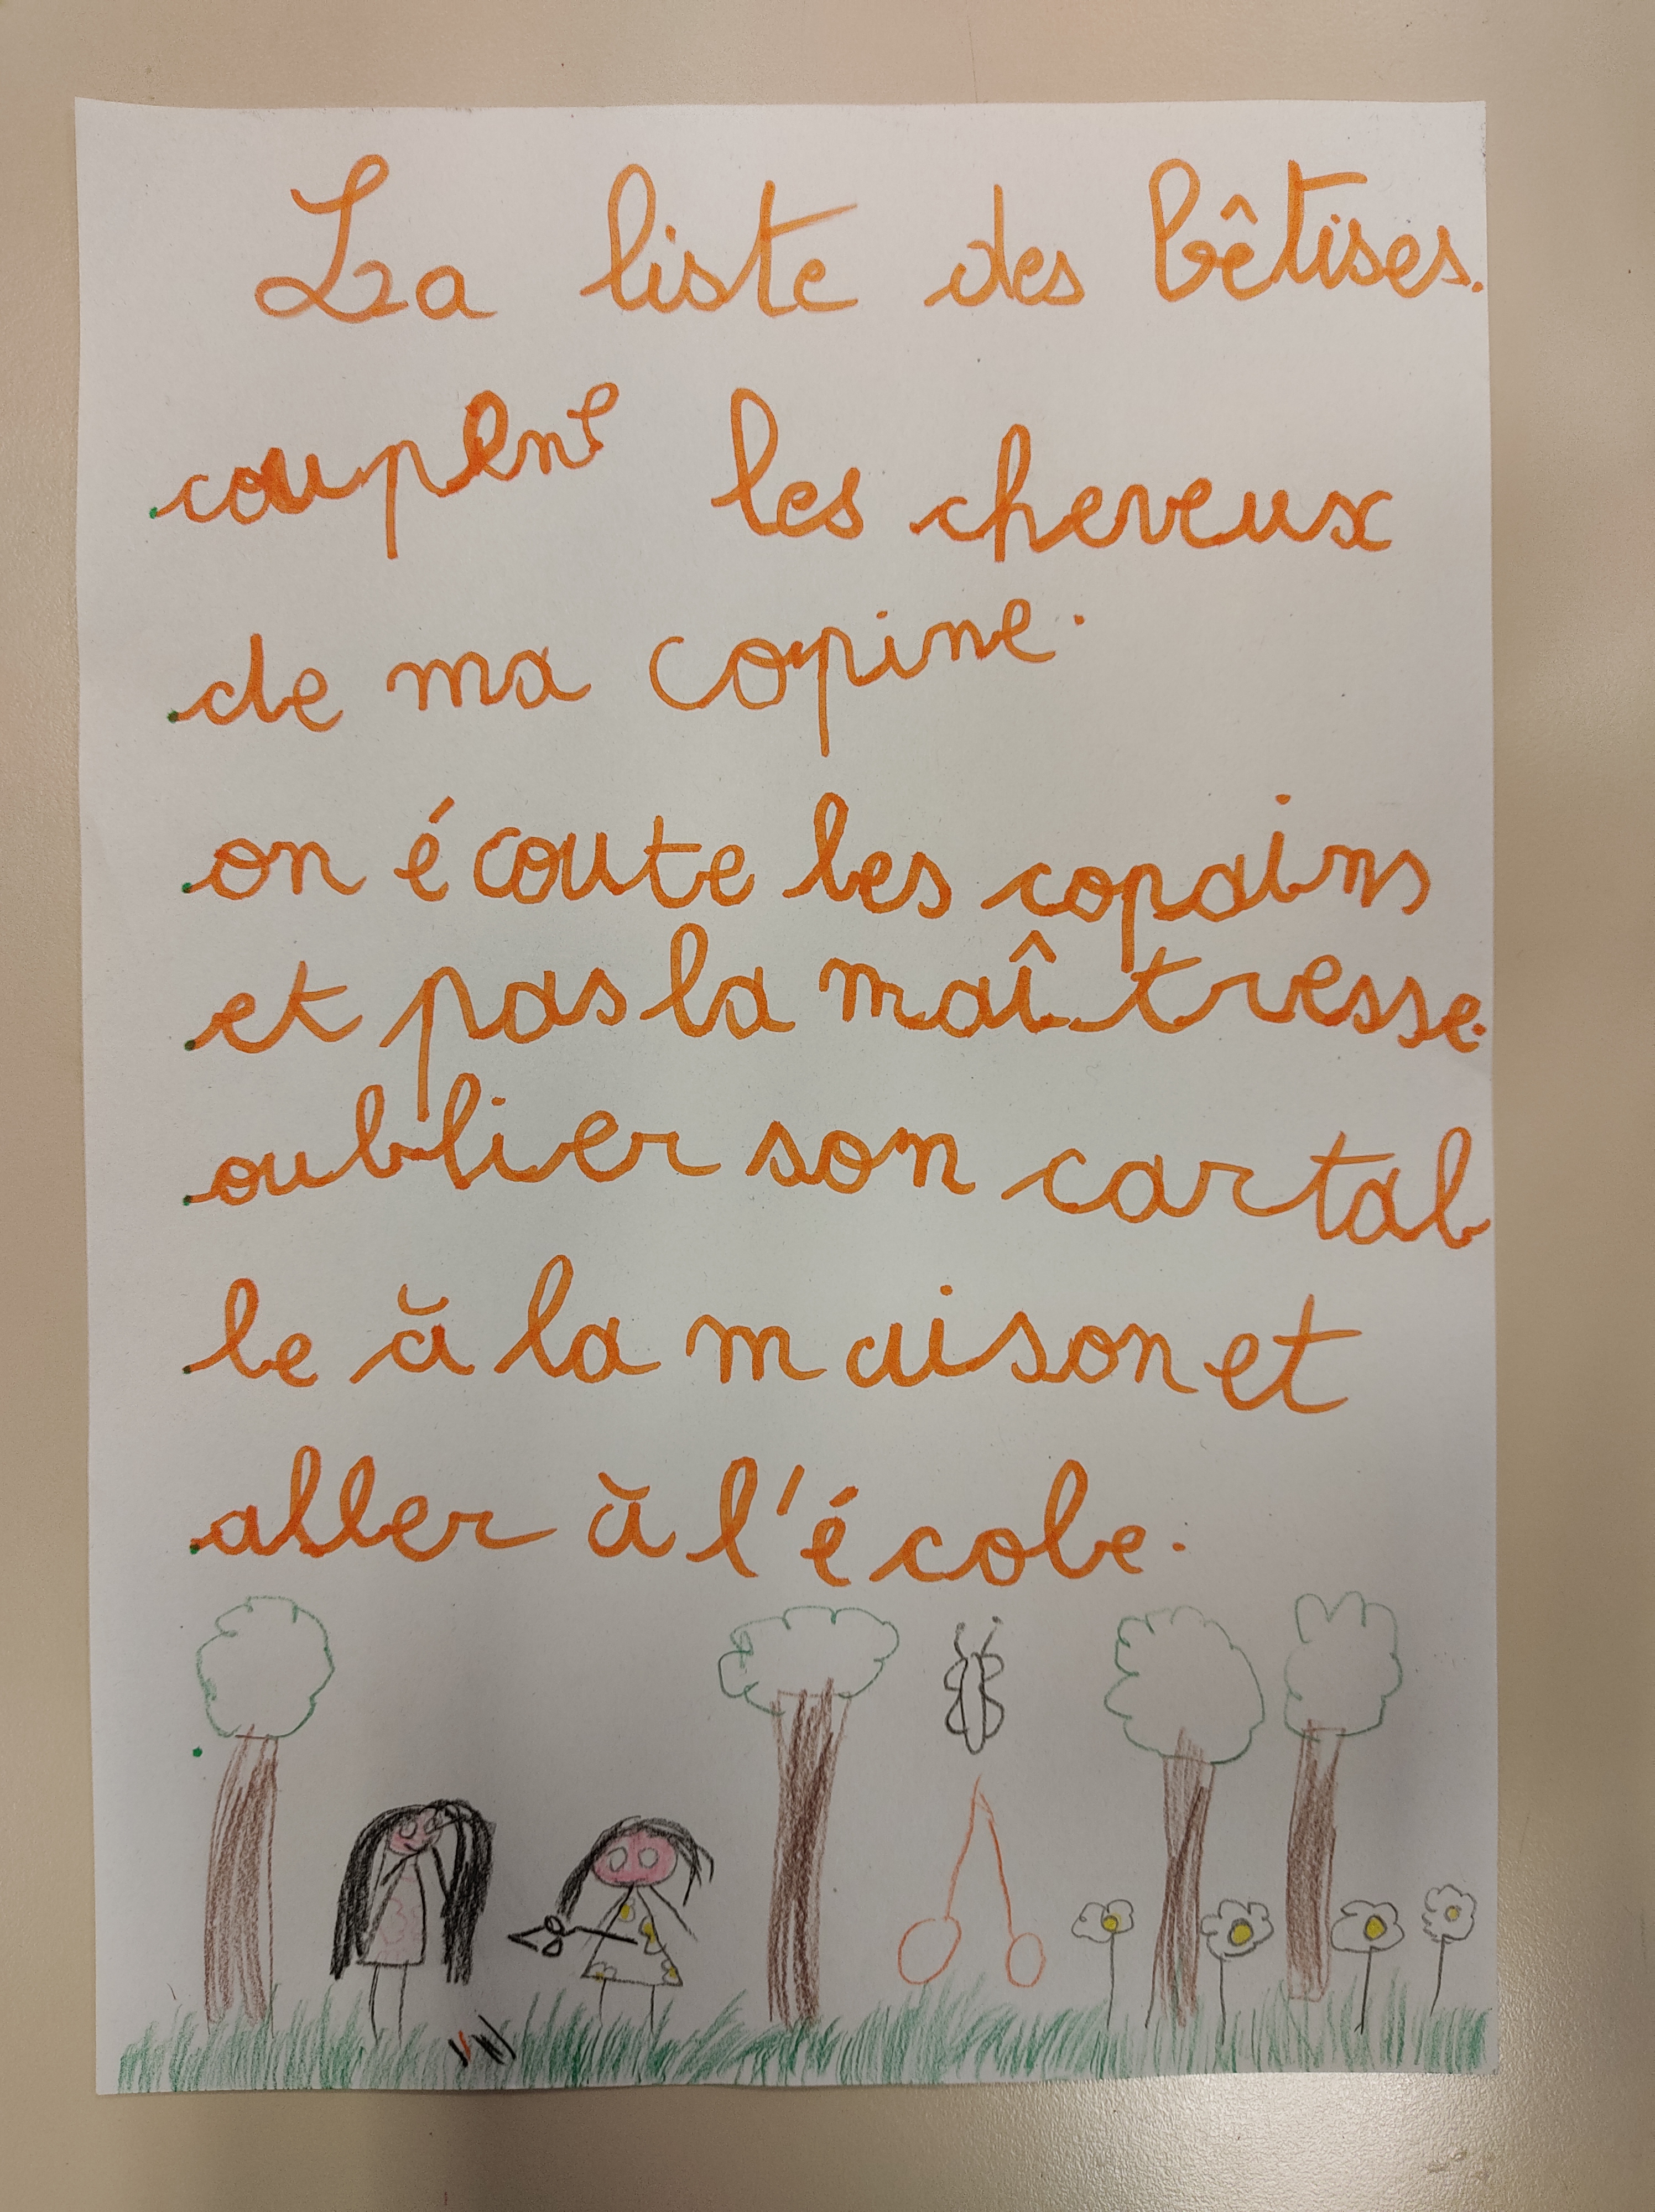 La liste des bêtises.
coupent les cheveux
de ma copine.
on écoute les copains
et pas la maîtresse.
oublier son cartab
le à la maison et
aller à l'école.